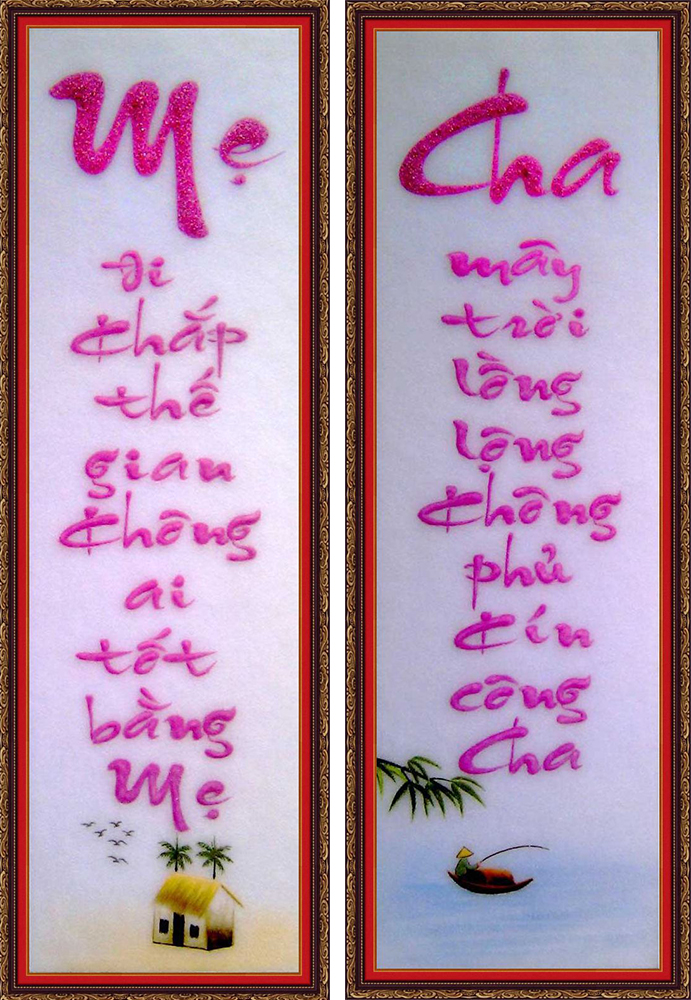 Mẹ
Đi
khắp
thế
gian
không
ai
tốt
bằng
Mẹ
Cha
mây
trời
lồng
lộng
không
phủ
kín
công
Cha